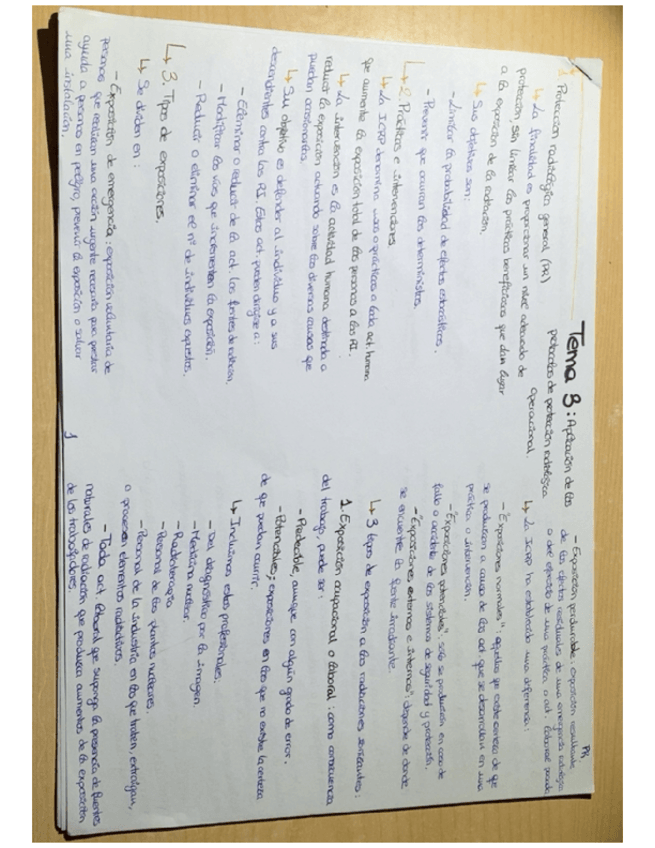 Tema 3: Aplicación de los
protocolos de protección radiológica
operacional.
1. Protección radiológica general (PR)
↳ La finalidad es proporcionar un nivel adecuado de
protección, sin limitar las prácticas beneficiosas que dan lugar
a la exposición de la radiación.
↳ Sus objetivos son:
- Limitar la probabilidad de efectos estocásticos.
- Prevenir que ocurran los deterministas.
↳ 2. Prácticas e intervenciones
↳ La ICRP denomina usos o prácticas a toda act. humana
que aumenta la exposición total de las personas a las RI.
↳ La intervención es la actividad humana destinada a
reducir la exposición actuando sobre las diversas causas que
puedan ocasionarla.
↳ Su objetivo es defender al individuo y a sus
descendientes contra las RI. Estas act. pueden dirigirse a:
- Eliminar o reducir de la act. las fuentes de radiación.
- Modificar las vías que incrementen la exposición.
- Reducir o eliminar el nº de individuos expuestos.
↳ 3. Tipos de exposiciones.
↳ Se dividen en:
- Exposición de emergencia: exposición voluntaria de
personas que realizan una acción urgente necesaria para prestar
ayuda a personas en peligro, prevenir la exposición o salvar
una instalación.
1
PR
- Exposición perdurable: exposición resultante
de los efectos residuales de una emergencia radiológica
o del ejercicio de una práctica o act. laboral pasada
↳ La ICRP ha establecido una diferencia:
- "Exposiciones normales": aquellas que existe certeza de que
se produzcan a causa de las act. que se desarrollan en una
práctica o intervención.
- "Exposiciones potenciales": solo se producirían en caso de
fallo o accidente de los sistemas de seguridad y protección.
- "Exposiciones externas e internas": depende de donde
se encuentre la fuente irradiante.
↳ 3 tipos de exposición a las radiaciones ionizantes:
1. Exposición ocupacional o laboral: como consecuencia
del trabajo, puede ser:
- Predecible, aunque con algún grado de error.
- Potenciales; exposiciones en las que no existe la certeza
de que puedan ocurrir.
↳ Incluimos estos profesionales:
- Del diagnóstico por la imagen.
- Medicina nuclear.
- Radioterapia
- Personal de las plantas nucleares.
- Personal de la industria en las que traten, extraigan,
o procesen elementos radiactivos.
- Toda act laboral que suponga la presencia de fuentes
naturales de radiación que produzca aumentos de la exposición
de los trabajadores.